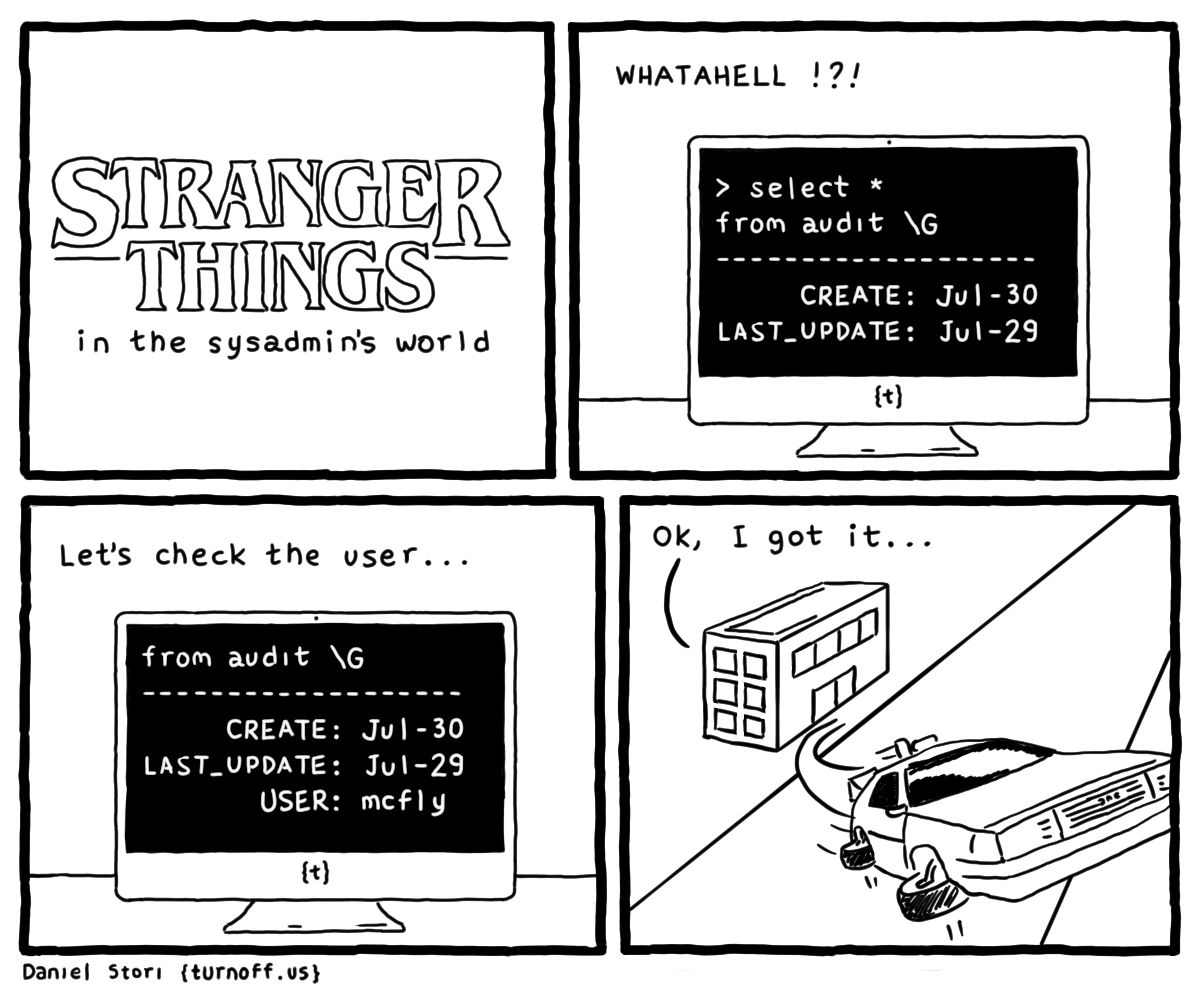 STRANGER
THINGS
in the sysadmin's world
WHATAHELL !?!
> select *
from audit \G
-------------------
CREATE: Jul-30
LAST_UPDATE: Jul-29
{t}
Let's check the user...
from audit \G
-------------------
CREATE: Jul-30
LAST_UPDATE: Jul-29
USER: mcfly
{t}
Ok, I got it...
Daniel Stori {turnoff.us}